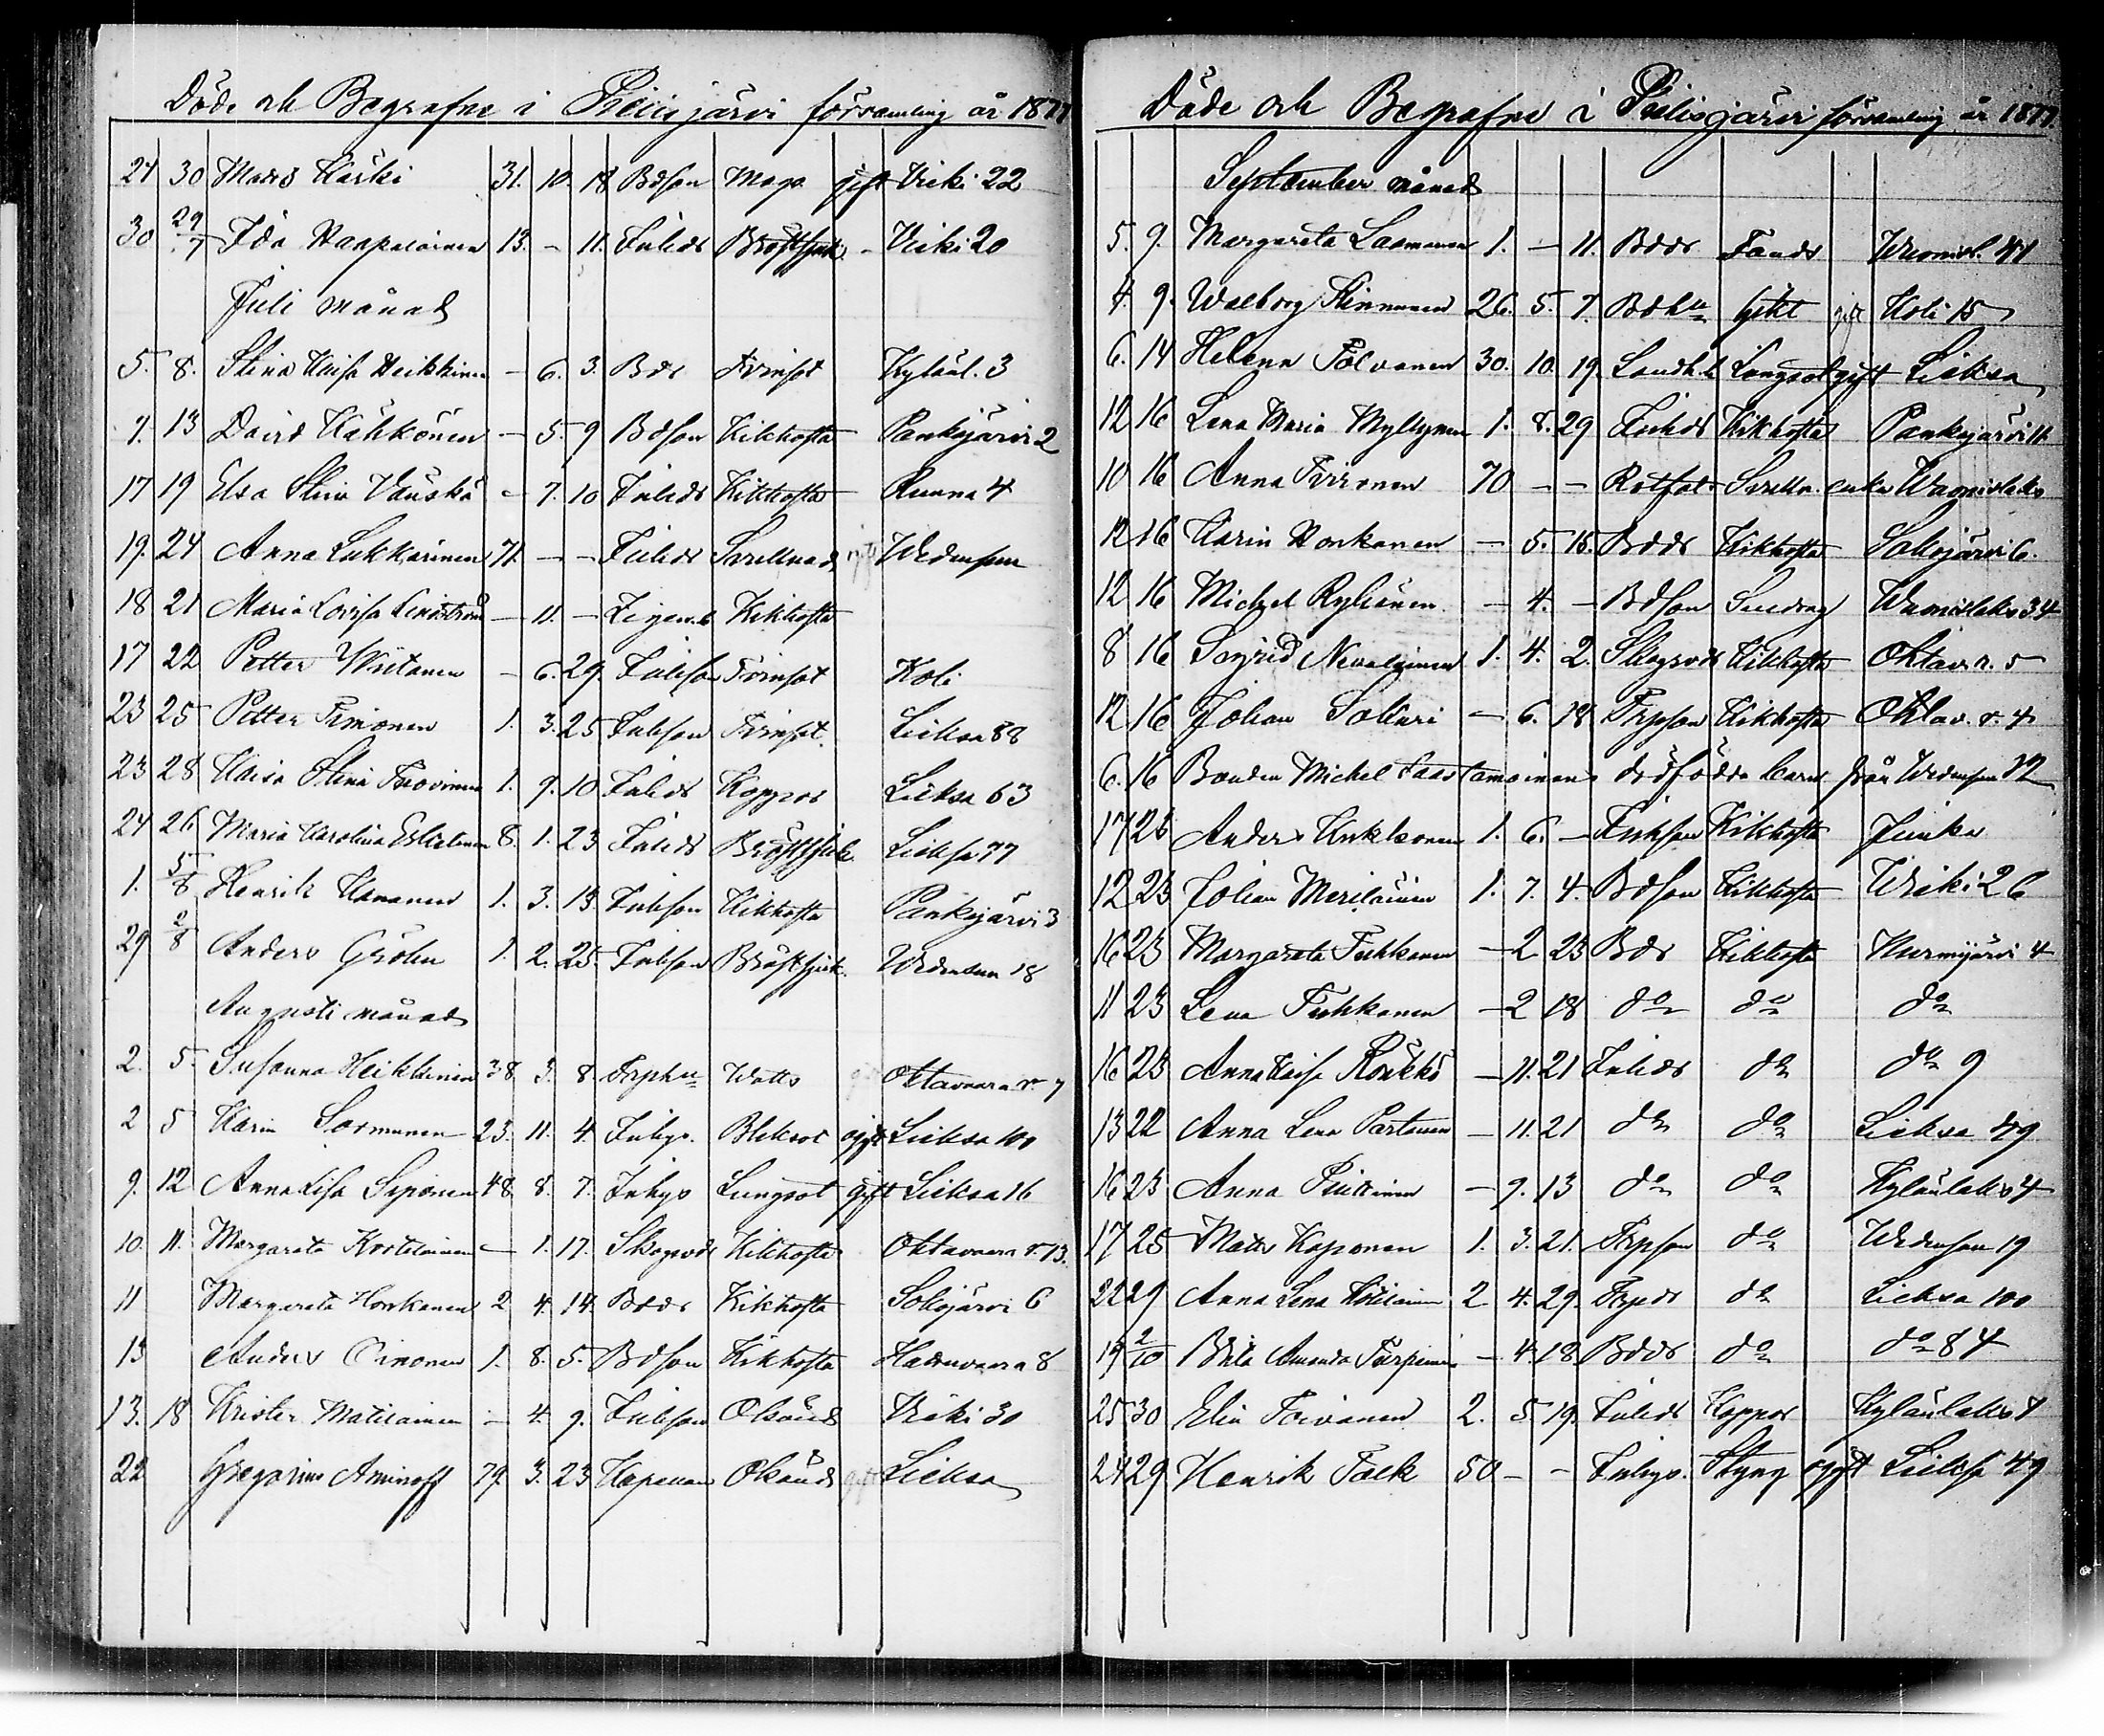 Döde och Begrafne i Pielisjärvi församling år 1877
24 30 Mats Kärki 31. 10. 18 Bdson Maga gift Vieki 22
30 29/7 Ida Haapalainen 13. - 11. Inhds Bröstsjuk. - Vieki 20
Juli månad
5. 8. Stina Kaisa Heikkinen - 6. 3. Bds Kyläul. 3
7. 13 David Kähkönen - 5. 9 Bdson Kikhosta Pankajärvi 2
17 19 Elsa Stina - 7. 10 Inhds Kikhosta Kunna 4
19. 24 Anna Lukkarinen 71. - - Inhds Svullnad
18 21 Maria Lovisa Lindström - 11. - Kikhosta
17 22 Petter - 6. 29. Inhson Koli
23 25 Petter Timonen 1. 3. 25 Inhson Lieksa 88
23 28 Kaisa Stina 1. 9. 10 Inhds Koppor Lieksa 63
24 26 Maria Karolina 8. 1. 23 Inhds Bröstsjuk. Lieksa 77
1. 5/8 Henrik 1. 3. 13. Inhson Kikhosta Pankajärvi 3
29 2/8 Anders Gröhn 1. 2. 25. Inhson Bröstsjuk. 18
Augusti månad
2. 5. Susanna Heikkinen 38. 3. 8. Watts Oktavaara r. 7
2 5 Karin Sormunen 23. 11. 4. Inhgs. Bleksot ogift Lieksa 100
9. 12 Anna Lisa Siponen 48. 8. 7. Inhgs Lungsot gift Lieksa 16
10. 11. Margareta Kortelainen - 1. 17. Skogsvds Kikhosta Oktavaara r. 13.
11 Margareta Honkanen 2 4. 14. Bdds Kikhosta Sokojärvi 6
13 Anders Oinonen 1. 8. 5. Bdson Kikhosta Hatunvaara 8
13. 18 Krister Matilainen - 4. 9. Inhson Okänd Vieki 30
22 Gregorius Aminoff 79. 3. 23 Okänd gift Lieksa
Döde och Begrafne i Pielisjärvi församling år 1877.
September månad
5. 9. Margareta Laamanen 1. - 11. Bdds Tands 41
4. 9. Walborg Kinnunen 26. 5. 7. Bdhu Gikt gift Koli 15
6. 14 Helena Tolvanen 30. 10. 19. Lungsot gift Lieksa
12 16 Lena Maria Myllynen 1. 8. 29 Inhds Kikhosta Pankajärvi 11
10 16 Anna 70 - - Svulln. enka
12 16 Karin Honkanen - 5. 15. Bdds Kikhosta Sokojärvi 6.
12 16 Michel - 4. - Bdson 34
8 16 Sigrid Nevalainen 1. 4. 2. Skogsvds Kikhosta Oktav. r. 5
12 16 Johan Sallari - 6. 18. Trpson Kikhosta Oktav. r. 4
6. 16 Bonden Michel Saastamoinens dödfödda barn från 12
17 23 Anders Kukkonen 1. 6. - Inhson Kikhosta Junka
12 23 Johan Meriläinen 1. 7. 4. Bdson Kikhosta Vieki 26
16 23 Margareta Tuhkanen - 2 23 Bds Kikhosta Nurmijärvi 4
11 23 Lena Tuhkanen - 2 18 do do do
16 23 Anna Kaisa Rönkkö - 11. 21 Inhds do do 9
13 22 Anna Lena Partanen - 11. 21 do do Lieksa 49
16 23 Anna Piittinen - 9. 13 do do Kyläulaks 4
17 25 Matts Koponen 1. 3. 21. Trpson do 19
22 29 Anna Lena 2 4. 29. Trpds do Lieksa 100
19 2/10 Brita Amanda Turpeinen - 4. 18 Bdds do do 84
25 30 Elin Toivanen 2. 5. 19. Inhds Koppor Kyläulaks 7
24 29 Henrik Falk 50 - - Inhgs. Styng ogift Lieksa 49